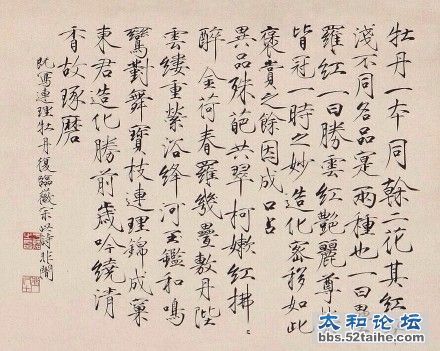 牡丹一本同幹二花其紅深
淺不同名品是兩種也一曰疊
羅紅一曰勝雲紅艷麗尊榮
皆冠一時之妙造化密移如此
褒賞之餘因成口占
異品殊葩共翠柯嫩紅拂〻
醉金荷春羅幾疊敷丹陛
雲縷重縈浴絳河玉鑑和鳴
鸞對舞寶枝連理錦成窠
東君造化勝前歲吟繞清
香故琢磨
既寫連理牡丹復臨徽宗此詩非闇
太和论坛
bbs.52taihe.com